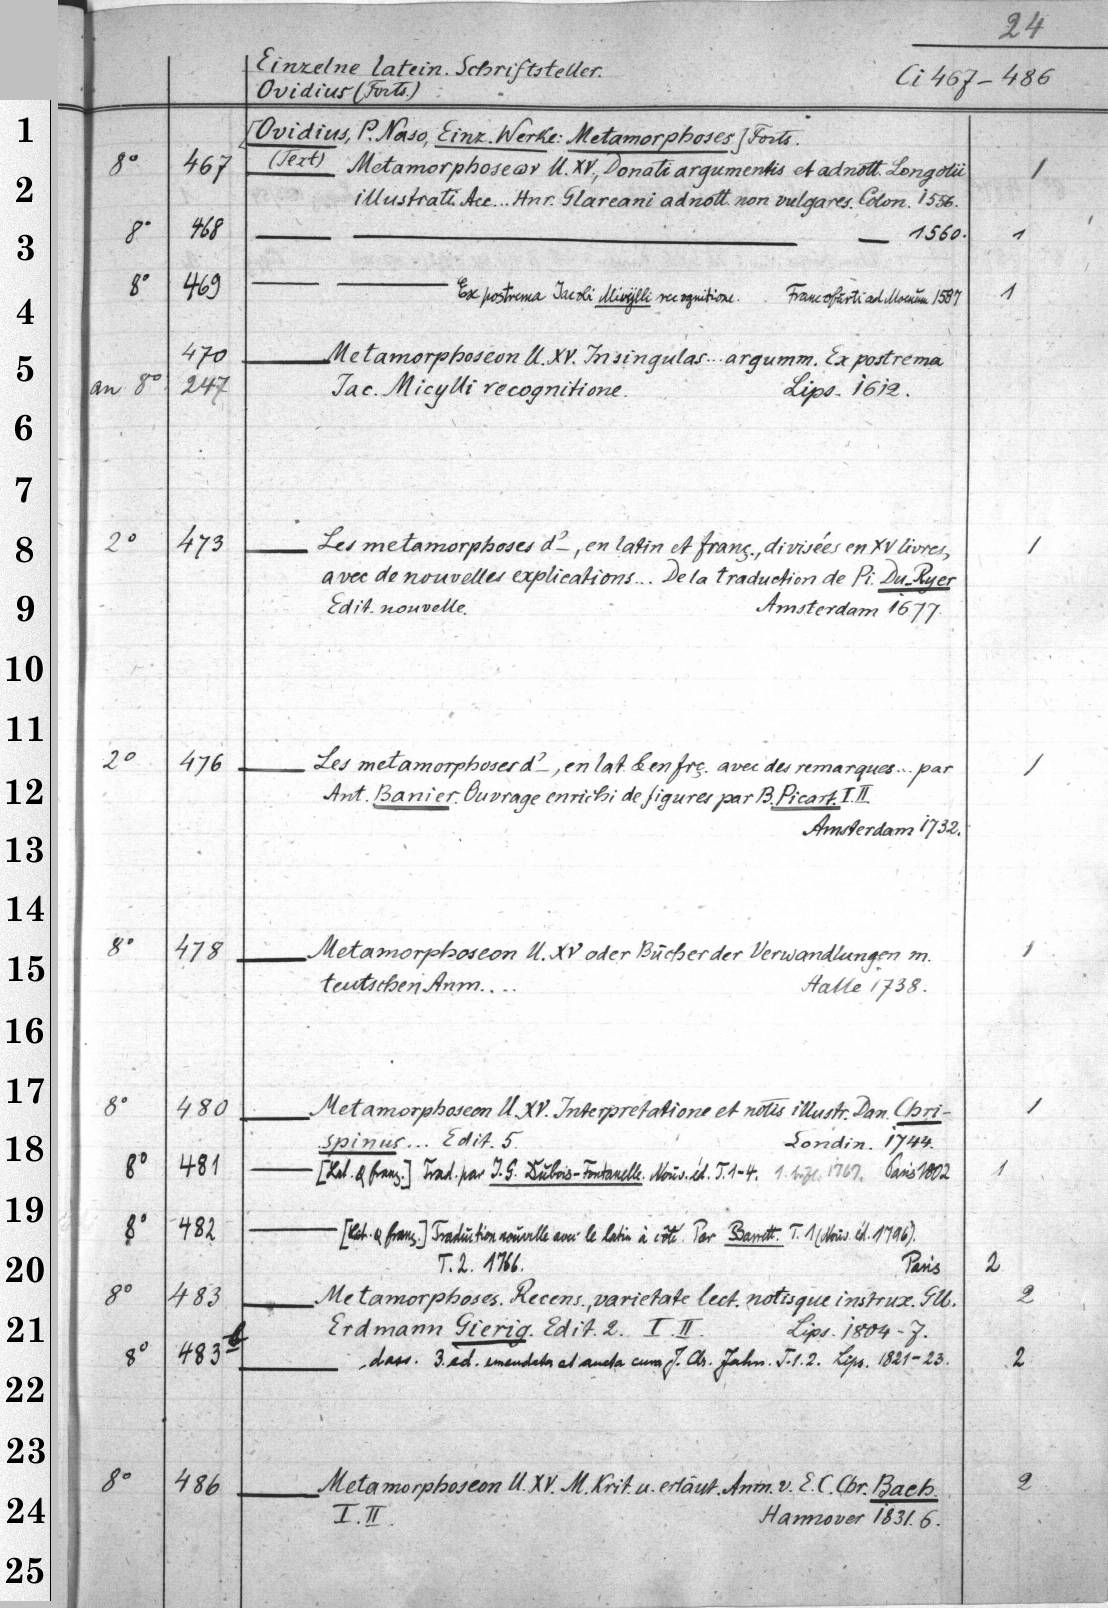 24
Einzelne latein. Schriftsteller.
Ovidius (Forts.)
Ci 467–486
[Ovidius, P. Naso, Einz. Werke: Metamorphoses.] Forts.
8° 467 (Text) Metamorphoseων ll. XV, Donati argumentis et adnott. Longolii 1
illustrati. Acc... Hnr. Glareani adnott. non vulgares. Colon. 1556.
8° 468 — — — 1560. 1
8° 469 — — Ex postrema Jacobi Micylli recognitione. Francofurti ad Moenum 1587 1
470 — Metamorphoseon ll. XV. In singulas... argumm. Ex postrema
an 8° 247 Jac. Micylli recognitione. Lips. 1612.
2° 473 — Les metamorphoses d'–, en latin et franç., divisées en XV livres, 1
avec de nouvelles explications... De la traduction de Pi. Du-Ryer
Edit. nouvelle. Amsterdam 1677.
2° 476 — Les metamorphoses d'–, en lat. & en frç. avec des remarques... par 1
Ant. Banier. Ouvrage enrichi de figures par B. Picart. I. II.
Amsterdam 1732.
8° 478 — Metamorphoseon ll. XV oder Bücher der Verwandlungen m. 1
teutschen Anm.... Halle 1738.
8° 480 — Metamorphoseon ll. XV. Interpretatione et notis illustr. Dan. Chri- 1
spinus... Edit. 5. Londin. 1744.
8° 481 — [Lat. & franz.] Trad. par J. G. Dubois-Fontanelle. Nouv. éd. T. 1–4. 1767. Paris 1802 1
8° 482 — [Lat. & franz.] Traduction nouvelle avec le latin à côté. Par Barrett. T. 1 (Nouv. éd. 1796).
T. 2. 1766. Paris 2
8° 483 — Metamorphoses. Recens., varietate lect. notisque instrux. Gll. 2
Erdmann Gierig. Edit. 2. I. II. Lips. 1804–7.
8° 483b — dass. 3. ed. emendata et aucta cura J. Chr. Jahn. T. 1. 2. Lips. 1821–23. 2
8° 486 — Metamorphoseon ll. XV. M. Krit. u. erläut. Anm. v. E. C. Chr. Bach. 2
I. II. Hannover 1831. 6.
1
2
3
4
5
6
7
8
9
10
11
12
13
14
15
16
17
18
19
20
21
22
23
24
25